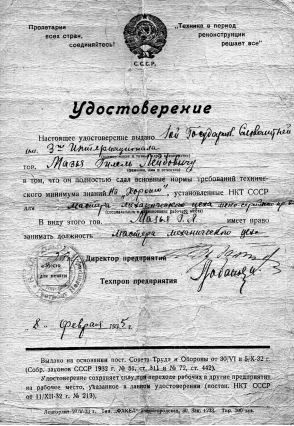 Пролетарии
всех стран,
соединяйтесь!
„Техника в период
реконструкции
решает все"
С.С.С.Р.
Удостоверение
Настоящее удостоверение выдано 1ой Государств.
им. 3го Интернационала
тов. Мазья Гилель Лейбовичу
(фамилия, имя и отчество)
в том, что он полностью сдал основные нормы требований техниче-
ского минимума знаний на „хорошо", установленные НКТ СССР
для мастера механического цеха
В виду этого тов. Мазья Г.Л. имеет право
занимать должность мастера механического цеха
Директор предприятия
Техпром предприятия
8 февраля 1935 г.
Выдано на основании пост. Совета Труда и Обороны от 30/VI и 5/X-32 г.
(Собр. законов СССР 1932 г. № 51, ст. 311 и № 72, ст. 442).
Удостоверение сохраняет силу при переходе рабочих в другие предприятия
на рабочее место, указанное в данном удостоверении (постан. НКТ СССР
от 11/XII-32 г. № 213).